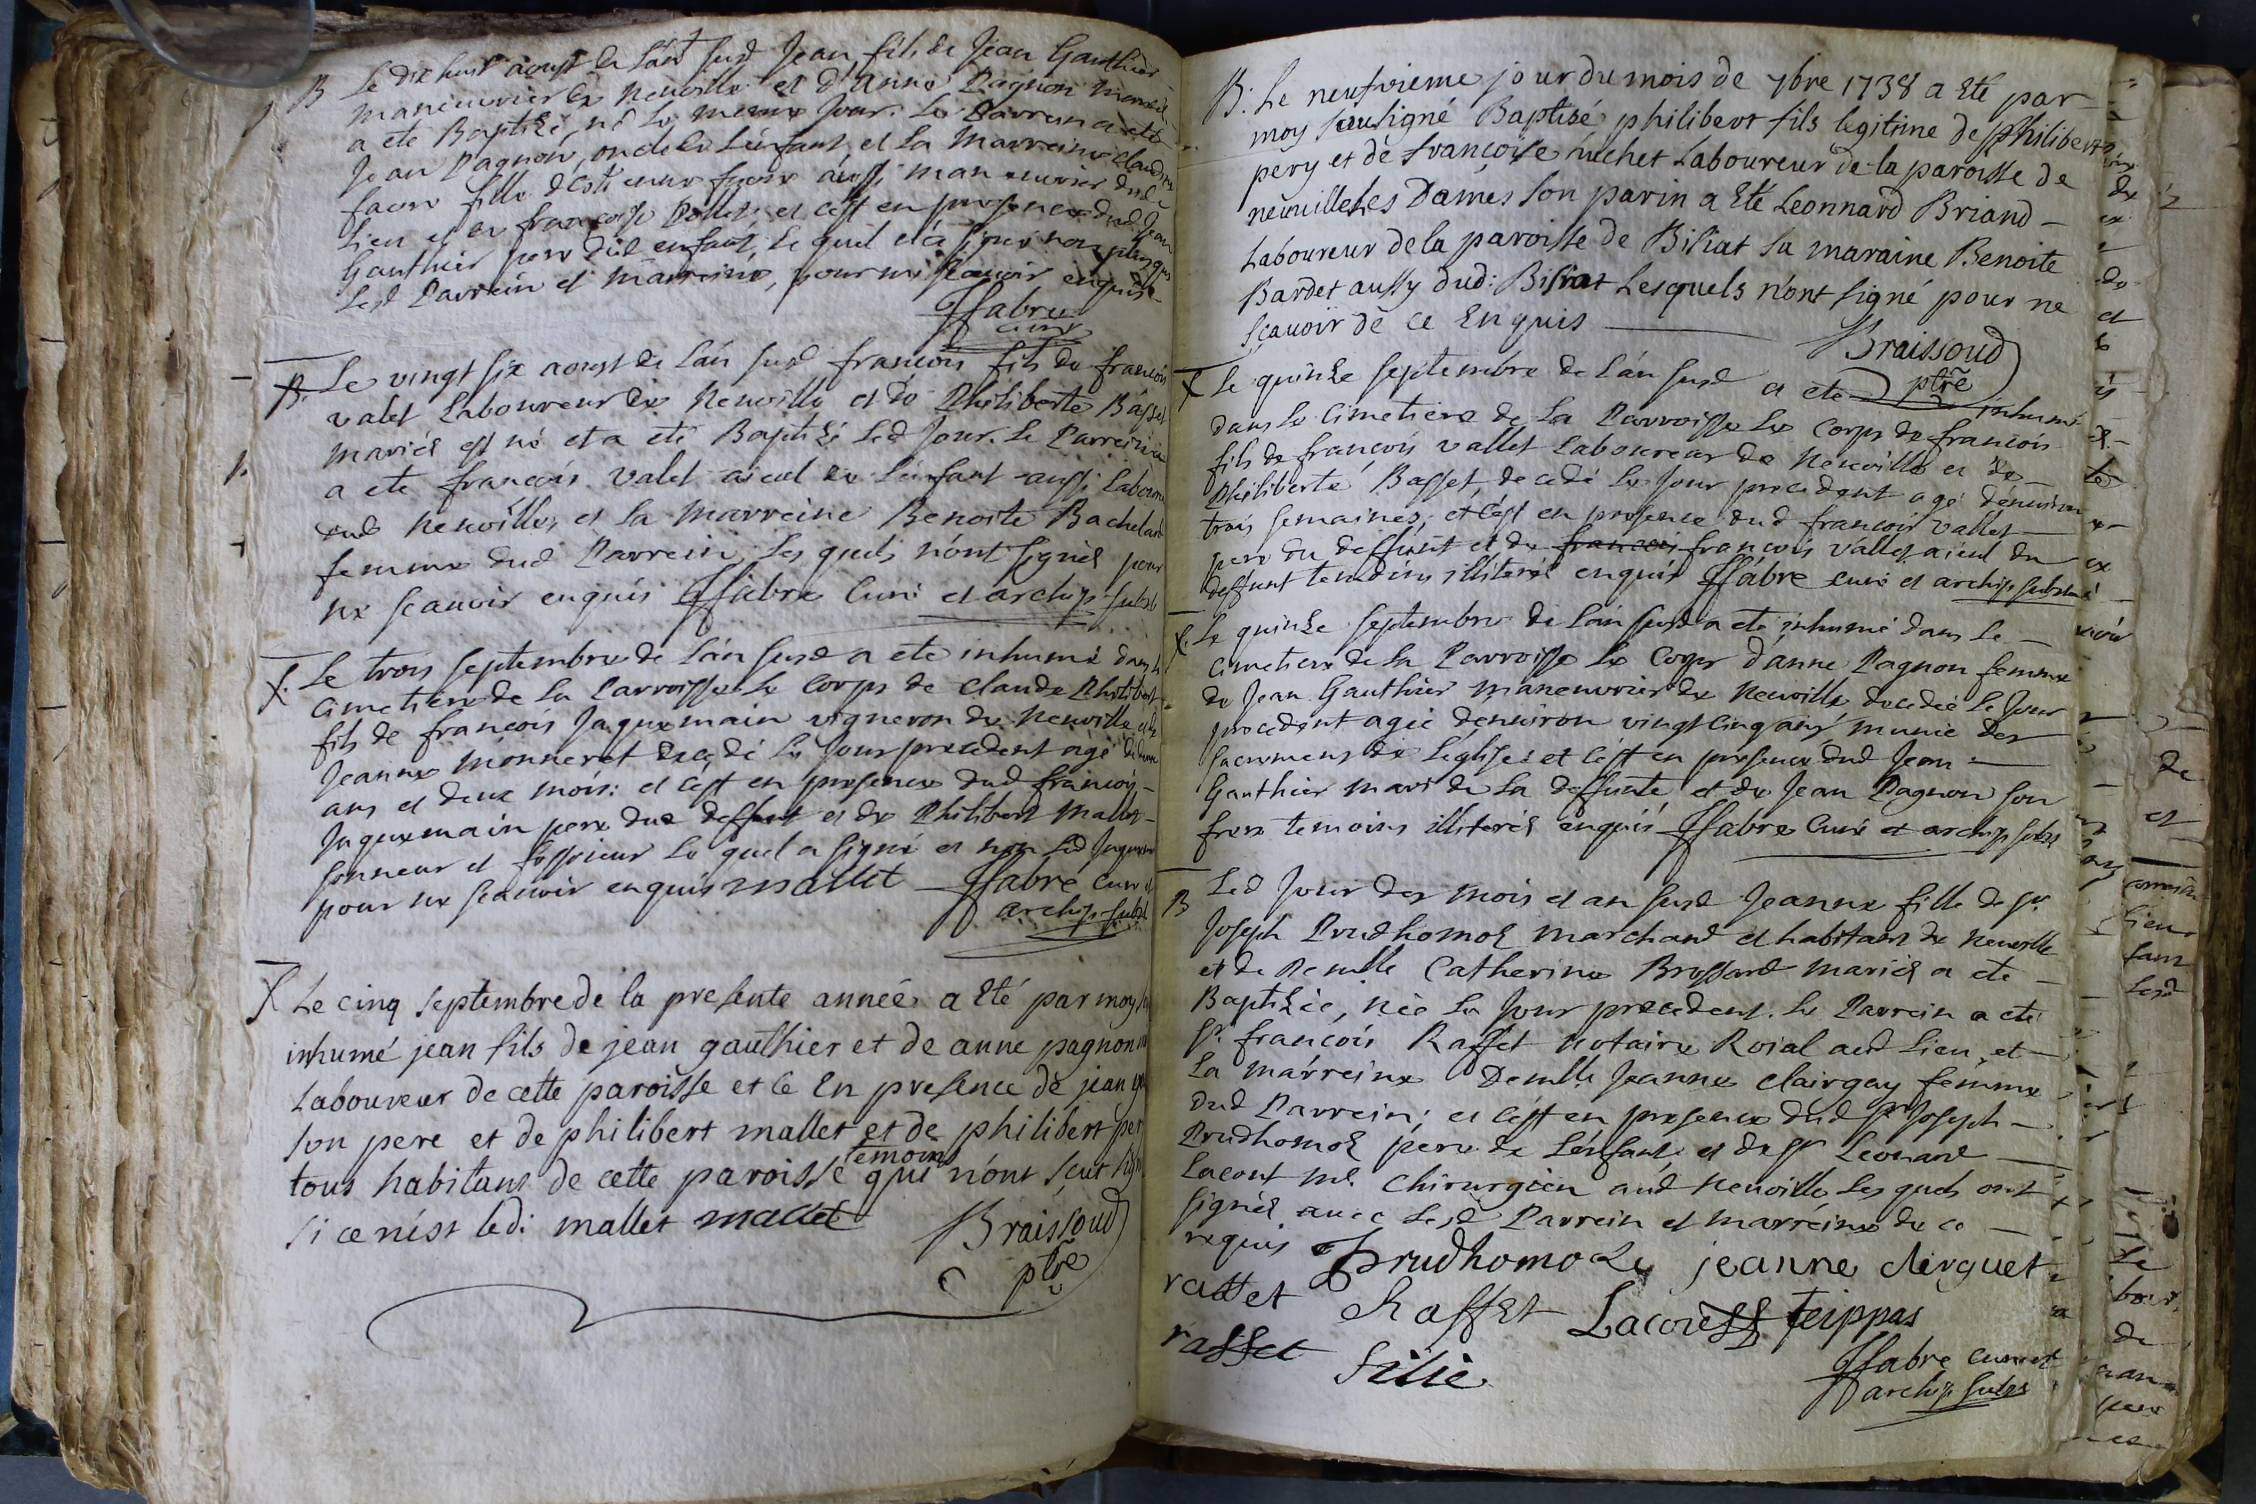 B Le dix huit aoust de l'an susd Jean fils de Jean Gauthier
maneuvrier de Neuville et d'Anne Pagnon mariés
a ete Baptizé, né le meme jour. Le Parrein a ete
Jean Pagnon, oncle de l'enfant et la Marreine Claudine
fille d'Estienne aussi maneuvrier dud
lieu et de françoise et c'est en presence dud Jean
Gauthier pere dud enfant, lequel n'a signé non plus que
lesd Parrein et Marreine, pour ne sçavoir enquis
Ffabre
curé
B. Le vingt six aoust de l'an susd francois fils de francois
valet Laboureur de Neuville et de Philiberte Basset
mariés est né et a eté Baptizé led Jour. Le Parrein
a ete francois valet aieul de l'enfant aussi Laboureur
dud Neuville, et la Marreine Benoite Bachelard
femme dud Parrein, les quels n'ont signés pour
ne scavoir enquis Ffabre Curé et archip. subst
f. Le trois septembre de l'an susd a ete inhumé dans le
cimetiere de la Parroisse le corps de Claude Philibert
fils de francois Jaquemain vigneron de Neuville et de
Jeanne monneret decedé le jour precedent agé de deux
ans et deux mois: et c'est en presence dud francois
Jaquemain pere dud deffunt et de Philibert Mallet
sonneur et fossoieur le quel a signé et non led Jaquemain
pour ne scavoir enquis mallet Ffabre curé et
archip. subst
f Le cinq septembre de la presente année a Eté par moy
inhumé jean fils de jean gauthier et de anne pagnon
Laboureur de cette paroisse et ce En presence de jean
son pere et de philibert mallet et de philibert pery
temoins
tous habitans de cette paroisse qui n'ont sçut signer
si ce n'est ledi mallet mallet Braissoud
ptre
B. Le neufvieme jour du mois de 7bre 1738 a Eté par
moy soussigné Baptisé philibert fils legitime de philibert
pery et de françoise Laboureur de la paroisse de
neuuille Les Dames son parin a Eté Leonnard Briand
Laboureur de la paroisse de Bisiat sa maraine Benoite
Bardet aussy dud: Bisiat Lesquels n'ont signé pour ne
sçauoir de ce Enquis
Braissoud
ptre
f Le quinze septembre de l'an susd a ete inhumé
dans le cimetiere de la Parroisse le corps de francois
fils de francois vallet Laboureur de Neuville et de
Philiberte Basset, decedé le jour precedent agé d'environ
trois semaines; et c'est en presence dud francois vallet
pere du deffunt et de francois francois vallet aieul du
deffunt temoins illiterés enquis Ffabre curé et archip. subst
f. Le quinze septembre de l'an susd a ete inhumé dans le
cimetiere de la Parroisse le Corps d'anne Pagnon femme
de Jean Gauthier maneuvrier de Neuville decedée le jour
precedent agée d'environ vingt cinq ans munie des
sacremens de l'eglise: et c'est en presence dud Jean
Gauthier mari de la deffunte et de Jean Pagnon son
frere temoins illiterés enquis Ffabre Curé et archip subst
B Led Jour des mois et an susd Jeanne fille de sr.
Joseph Prudhomos marchand et habitant de Neuville
et de Demlle Catherine Brossard mariés a ete
Baptizée, née le jour precedent. Le Parrein a ete
sr. francois Raffet notaire Roial aud lieu, et
la marreine Demlle Jeanne Clairgay femme
dud Parrein; et c'est en presence dud sr Joseph
Prudhomos pere de l'enfant et de sr Leonard
Lacont me. Chirurgien aud Neuville, les quels ont
signés avec lesd Parrein et marreine de ce
requis Prudhomos jeanne clerguet
raffet Raffet
raffet filie
Ffabre curé et
archip. subst